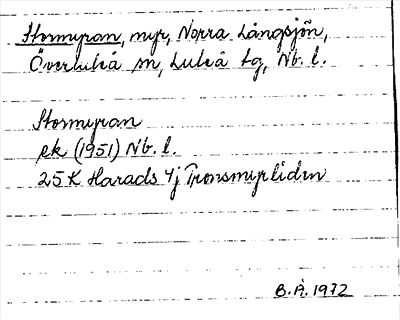 Stormyran, myr, Norra Långsjön,
Överluleå sn, Luleå tg, Nb. l.
Stormyran
ek (1951) Nb. l.
25K Harads 4j Tronsmyrliden
B.Å. 1972